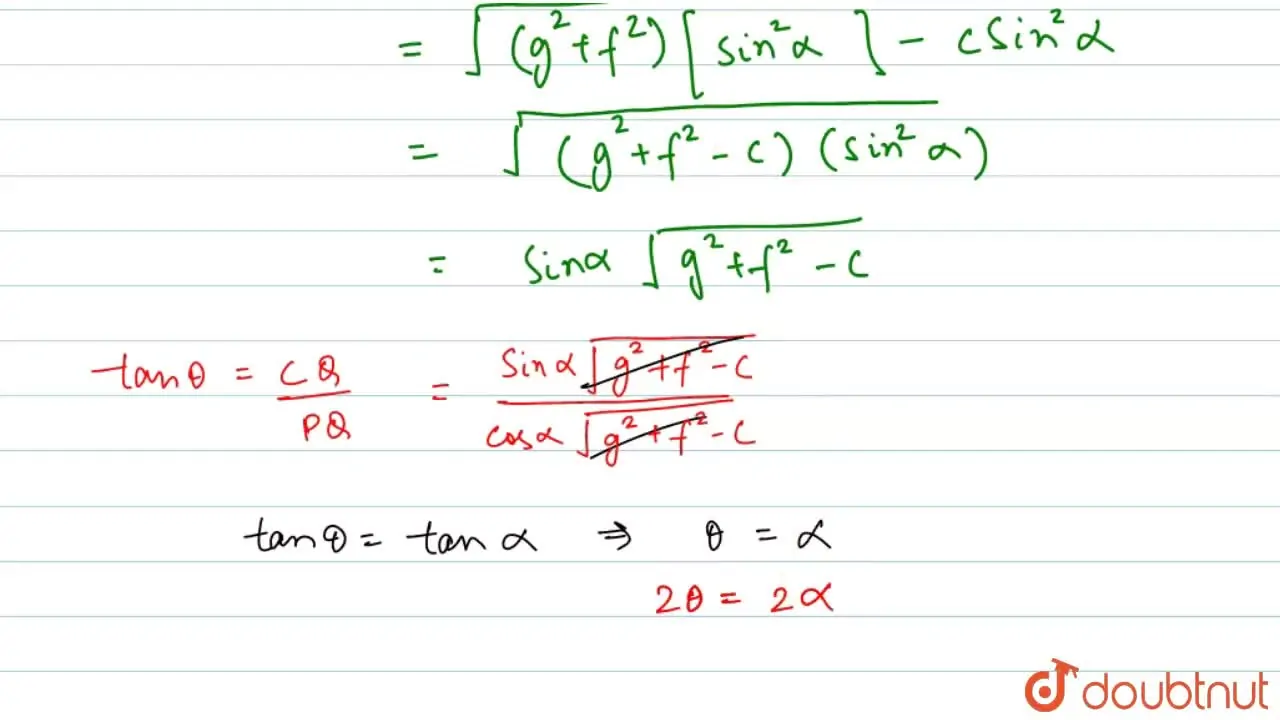 = √(g²+f²)[sin²α] - c sin²α
= √(g²+f²-c)(sin²α)
= sinα √g²+f²-c
tanθ = CQ/PQ = sinα√g²+f²-c / cosα√g²+f²-c
tanθ = tanα ⇒ θ = α
2θ = 2α
doubtnut